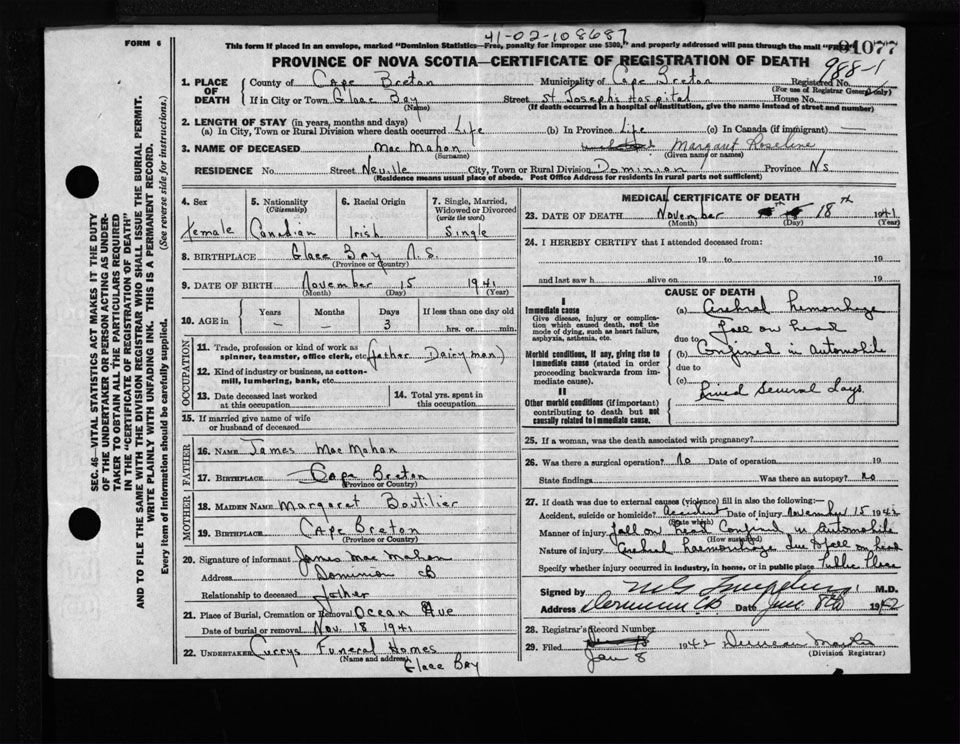 41-02-108687
FORM 6
This form if placed in an envelope, marked "Dominion Statistics—Free, penalty for improper use $300," and properly addressed will pass through the mail "FREE"
91077
PROVINCE OF NOVA SCOTIA—CERTIFICATE OF REGISTRATION OF DEATH
988-1
1. PLACE OF DEATH
County of Cape Breton Municipality of Cape Breton Registered No.
(For use of Registrar General only)
If in City or Town Glace Bay Street St Joseph's Hospital House No.
(Name) (If death occurred in hospital or institution, give the name instead of street and number)
2. LENGTH OF STAY (in years, months and days)
(a) In City, Town or Rural Division where death occurred Life (b) In Province Life (c) In Canada (if immigrant) —
3. NAME OF DECEASED Mac Mahon Margaret Roseline
(Surname) (Given name or names)
RESIDENCE No. Street Neville City, Town or Rural Division Dominion Province NS
(Residence means usual place of abode. Post Office Address for residents in rural parts not sufficient)
4. Sex
female
5. Nationality (Citizenship)
Canadian
6. Racial Origin
Irish
7. Single, Married, Widowed or Divorced (write the word)
Single
8. BIRTHPLACE Glace Bay N.S.
(Province or Country)
9. DATE OF BIRTH November 15 1941
(Month) (Day) (Year)
10. AGE in
Years Months Days If less than one day old
— — 3 hrs. or min.
OCCUPATION
11. Trade, profession or kind of work as spinner, teamster, office clerk, etc. (father Dairy man)
12. Kind of industry or business, as cotton-mill, lumbering, bank, etc.
13. Date deceased last worked at this occupation
14. Total yrs. spent in this occupation
15. If married give name of wife or husband of deceased
FATHER
16. NAME James Mac Mahon
17. BIRTHPLACE Cape Breton
(Province or Country)
MOTHER
18. MAIDEN NAME Margaret Boutilier
19. BIRTHPLACE Cape Breton
(Province or Country)
20. Signature of informant James Mac Mahon
Address Dominion CB
Relationship to deceased father
21. Place of Burial, Cremation or Removal Ocean Ave
Date of burial or removal Nov. 18 1941
22. UNDERTAKER Currys Funeral Homes
(Name and address) Glace Bay
MEDICAL CERTIFICATE OF DEATH
23. DATE OF DEATH November 18th 1941
(Month) (Day) (Year)
24. I HEREBY CERTIFY that I attended deceased from:
19 to 19
and last saw h alive on 19
CAUSE OF DEATH
I
Immediate cause
Give disease, injury or complication which caused death, not the mode of dying, such as heart failure, asphyxia, asthenia, etc.
Morbid conditions, if any, giving rise to immediate cause (stated in order proceeding backwards from immediate cause).
II
Other morbid conditions (if important) contributing to death but not causally related to immediate cause.
(a) Cerebral hemorrhage
fall on head
due to
(b) Confined in Automobile
due to
(c)
Lived several days.
25. If a woman, was the death associated with pregnancy?
26. Was there a surgical operation? No Date of operation 19
State findings Was there an autopsy? no
27. If death was due to external causes (violence) fill in also the following:
Accident, suicide or homicide? accident Date of injury November 15 1942
(State which)
Manner of injury fall on head Confined in Automobile
(How sustained)
Nature of injury Cerebral haemorrhage due to fall on head
Specify whether injury occurred in industry, in home, or in public place Public Place
Signed by M.D.
Address Dominion CB Date Jan 8th 1942
28. Registrar's Record Number
29. Filed Jan 8 1942 Duncan
(Division Registrar)
SEC. 46—VITAL STATISTICS ACT MAKES IT THE DUTY OF THE UNDERTAKER OR PERSON ACTING AS UNDERTAKER TO OBTAIN ALL THE PARTICULARS REQUIRED IN THE "CERTIFICATE OF REGISTRATION OF DEATH" AND TO FILE THE SAME WITH THE DIVISION REGISTRAR WHO SHALL ISSUE THE BURIAL PERMIT.
WRITE PLAINLY WITH UNFADING INK. THIS IS A PERMANENT RECORD.
Every item of information should be carefully supplied. (See reverse side for instructions.)